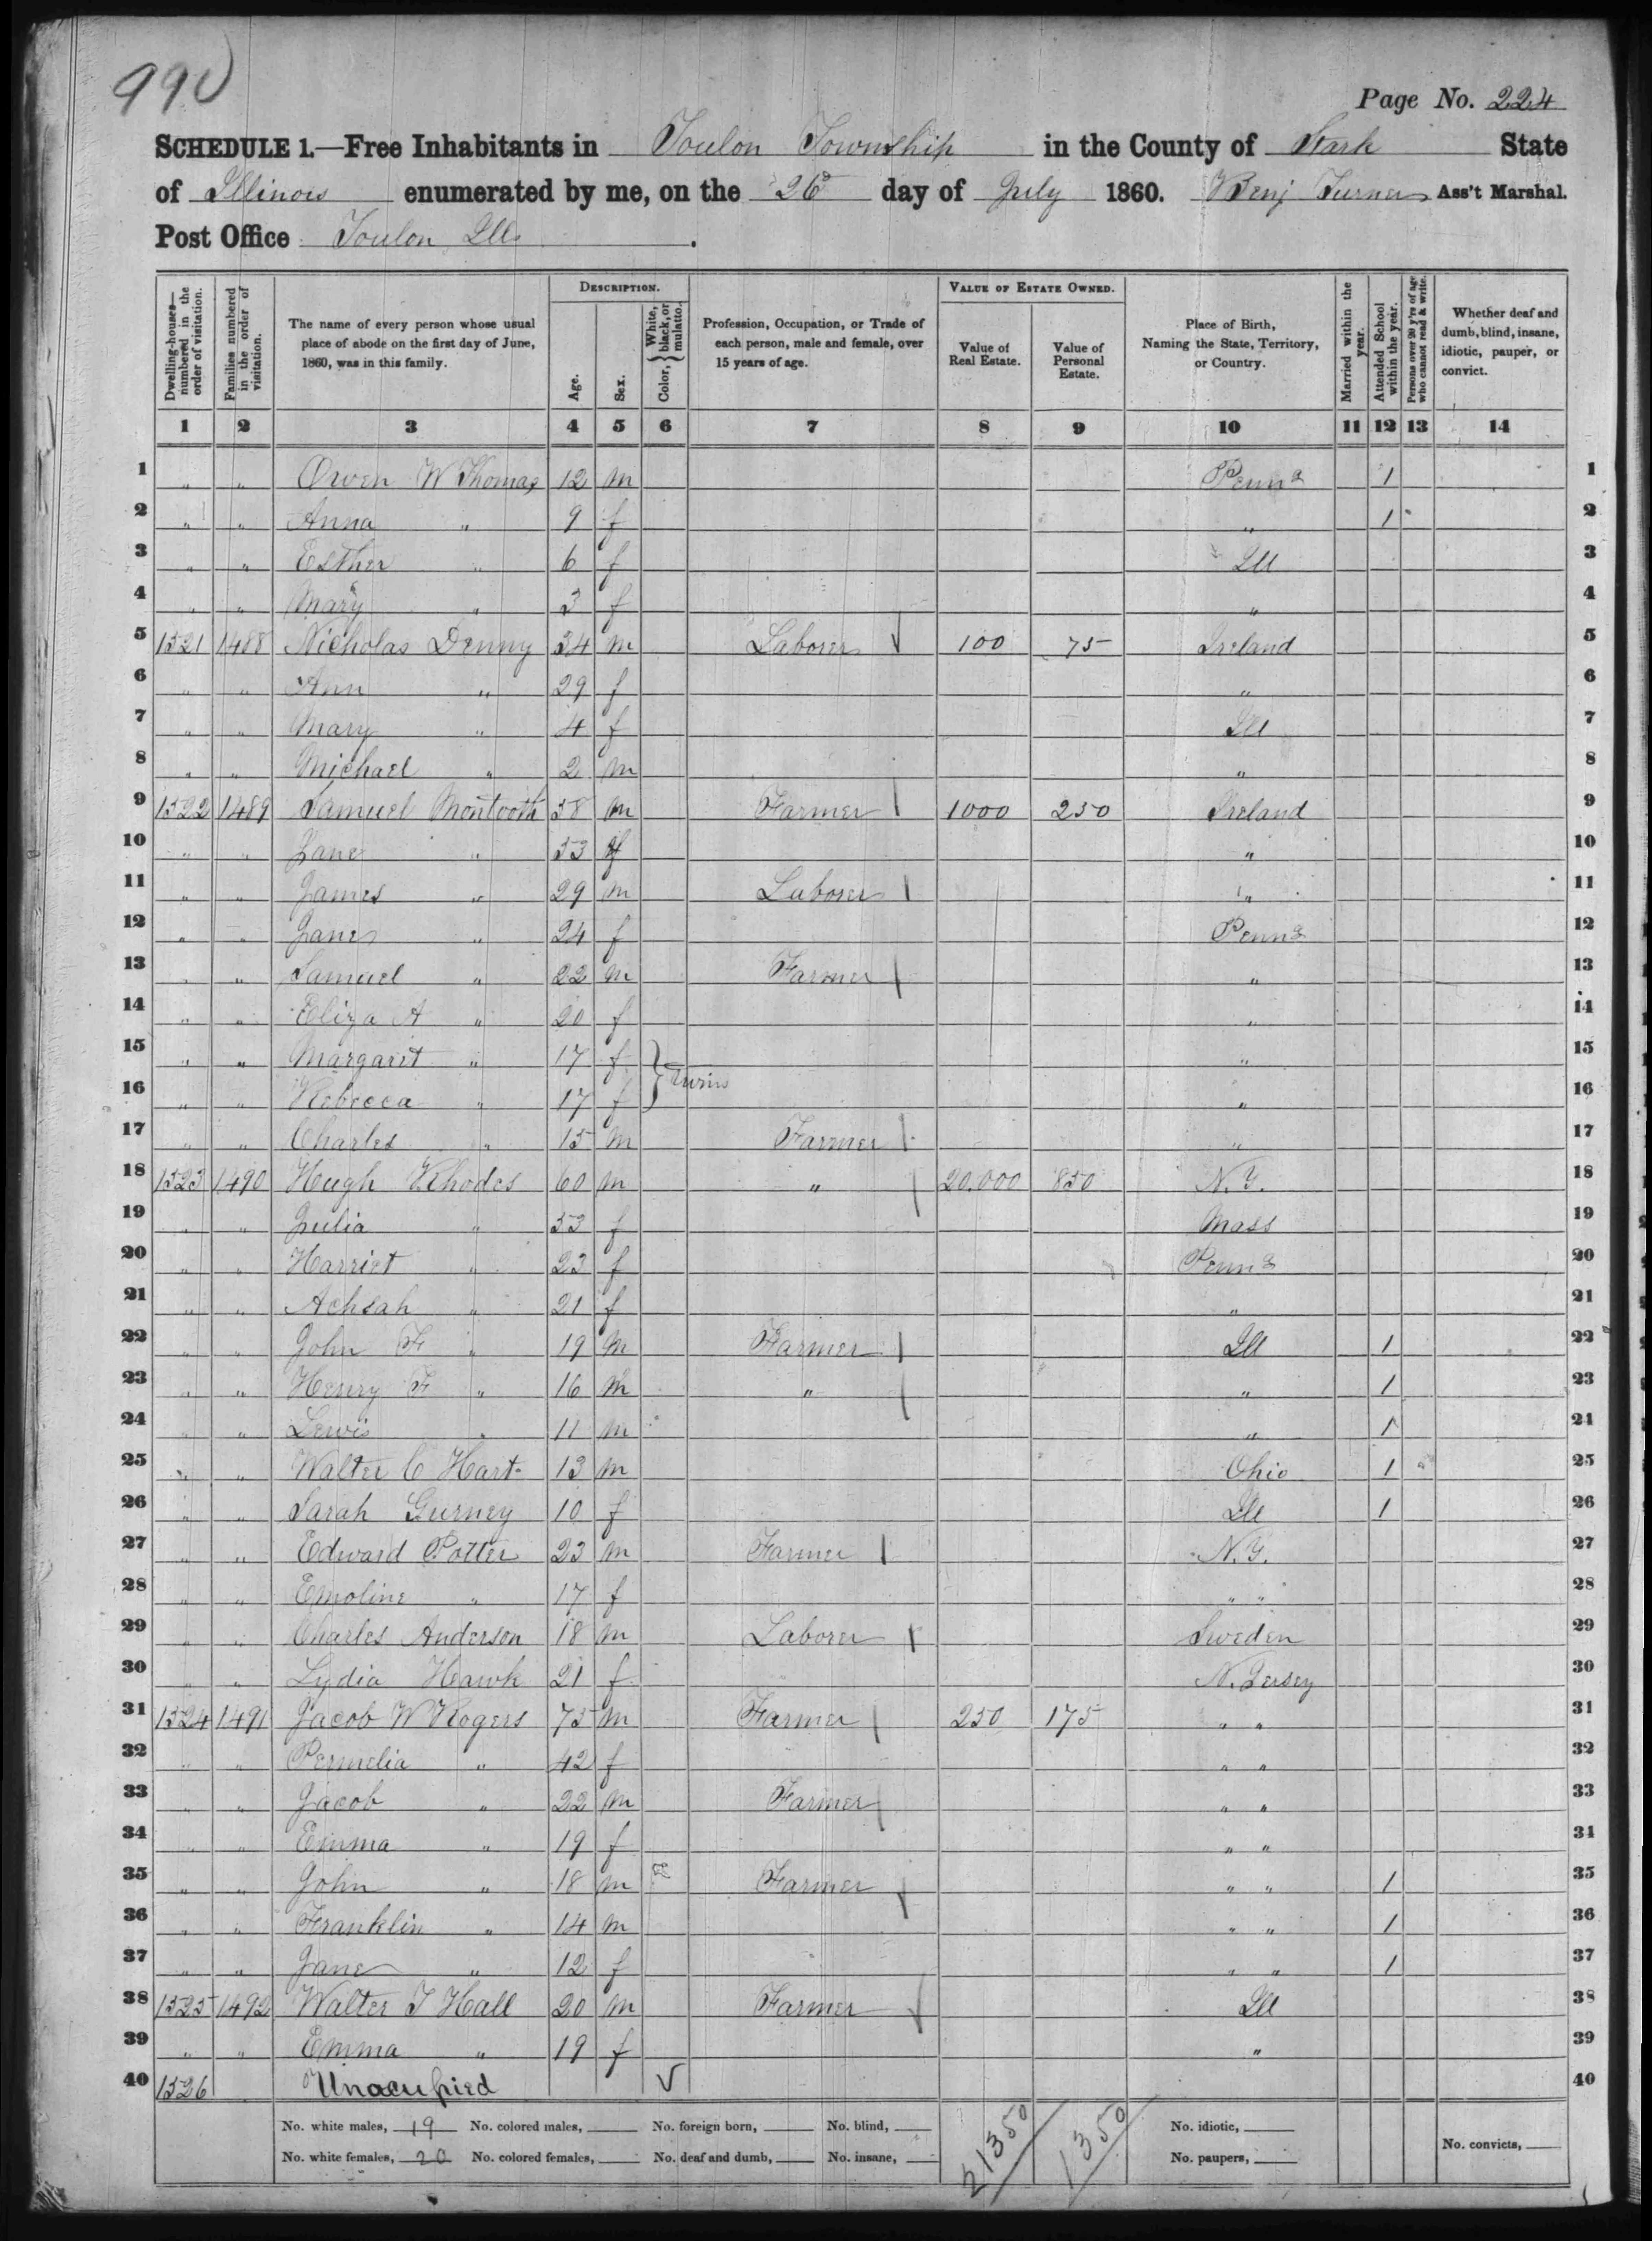 990
Page No. 224
SCHEDULE 1.—Free Inhabitants in Toulon Township in the County of Stark State
of Illinois enumerated by me, on the 26th day of July 1860. Benj Turner Ass't Marshal.
Post Office Toulon Ills.
DESCRIPTION. VALUE OF ESTATE OWNED.
Dwelling-houses—numbered in the order of visitation. Families numbered in the order of visitation. The name of every person whose usual place of abode on the first day of June, 1860, was in this family. Age. Sex. Color, { White, black, or mulatto. Profession, Occupation, or Trade of each person, male and female, over 15 years of age. Value of Real Estate. Value of Personal Estate. Place of Birth, Naming the State, Territory, or Country. Married within the year. Attended School within the year. Persons over 20 y'rs of age who cannot read & write. Whether deaf and dumb, blind, insane, idiotic, pauper, or convict.
1 2 3 4 5 6 7 8 9 10 11 12 13 14
1 " " Owen W Thomas 12 m Penna 1 1
2 " " Anna " 9 f " 1 2
3 " " Esther " 6 f Ill 3
4 " " Mary " 3 f " 4
5 1521 1488 Nicholas Denny 34 m Laborer 100 75 Ireland 5
6 " " Ann " 29 f " 6
7 " " Mary " 4 f Ill 7
8 " " Michael " 2 m " 8
9 1522 1489 Samuel Montooth 58 m Farmer 1000 250 Ireland 9
10 " " Jane " 53 f " 10
11 " " James " 29 m Laborer " 11
12 " " Jane " 24 f Penna 12
13 " " Samuel " 22 m Farmer " 13
14 " " Eliza A " 20 f " 14
15 " " Margaret " 17 f } Twins " 15
16 " " Rebecca " 17 f " 16
17 " " Charles " 15 m Farmer " 17
18 1523 1490 Hugh Rhodes 60 m " 20.000 850 N.Y. 18
19 " " Julia " 53 f Mass 19
20 " " Harriet " 23 f Penna 20
21 " " Achsah " 21 f " 21
22 " " John F " 19 m Farmer Ill 1 22
23 " " Henry F " 16 m " " 1 23
24 " " Lewis " 11 m " 1 24
25 " " Walter C Hart 13 m Ohio 1 25
26 " " Sarah Gurney 10 f Ill 1 26
27 " " Edward Potter 23 m Farmer N.Y. 27
28 " " Emoline " 17 f " " 28
29 " " Charles Anderson 18 m Laborer Sweden 29
30 " " Lydia Hawk 21 f N. Jersey 30
31 1524 1491 Jacob W Rogers 75 m Farmer 250 175 " " 31
32 " " Permelia " 42 f " " 32
33 " " Jacob " 22 m Farmer " " 33
34 " " Emma " 19 f " " 34
35 " " John " 18 m Farmer " " 1 35
36 " " Franklin " 14 m " " 1 36
37 " " Jane " 12 f " " 1 37
38 1525 1492 Walter T Hall 20 m Farmer Ill 38
39 " " Emma " 19 f " 39
40 1526 Unocupied 40
No. white males, 19 No. colored males, No. foreign born, No. blind, 21350 1350 No. idiotic,
No. white females, 20 No. colored females, No. deaf and dumb, No. insane, No. paupers, No. convicts,